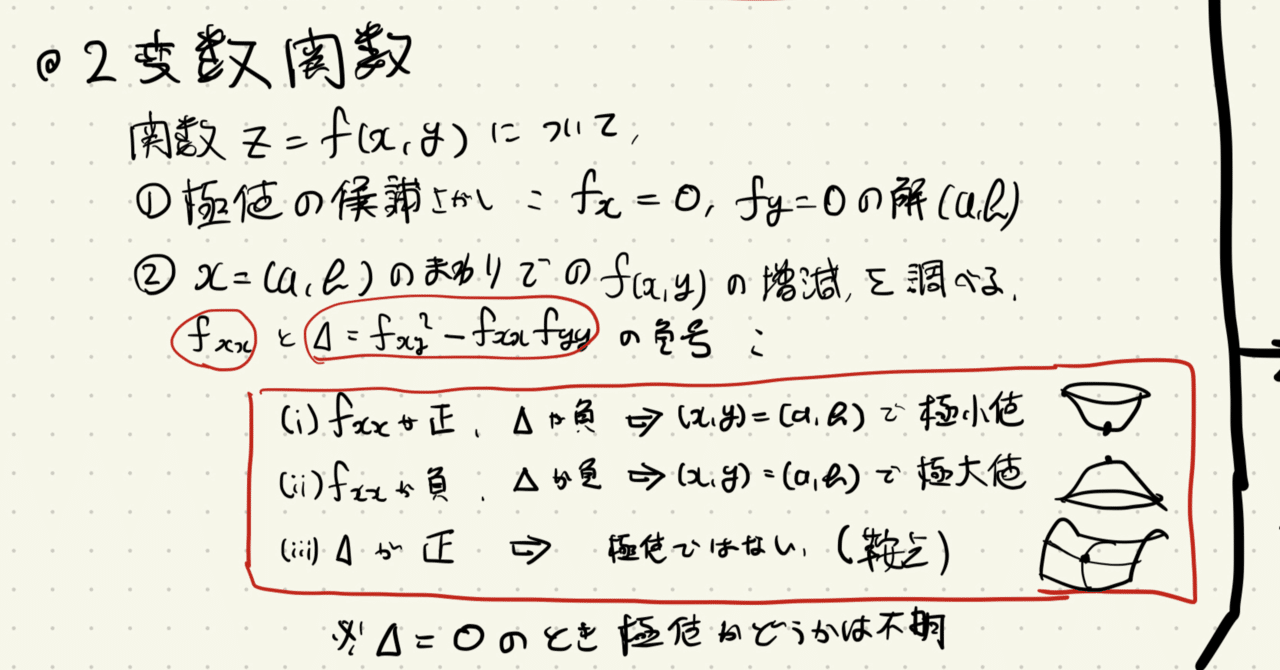 @ 2変数関数
関数 z = f(x, y) について,
① 極値の候補さがし : fx = 0, fy = 0 の解 (a, b)
② x = (a, b) のまわりでの f(x, y) の増減を調べる.
fxx と Δ = fxy² - fxx fyy の負号 :
(i) fxx が正, Δが負 ⇒ (x, y) = (a, b) で 極小値
(ii) fxx が負, Δが負 ⇒ (x, y) = (a, b) で 極大値
(iii) Δ が 正 ⇒ 極値ではない, (鞍点)
※ Δ = 0 のとき 極値かどうかは不明